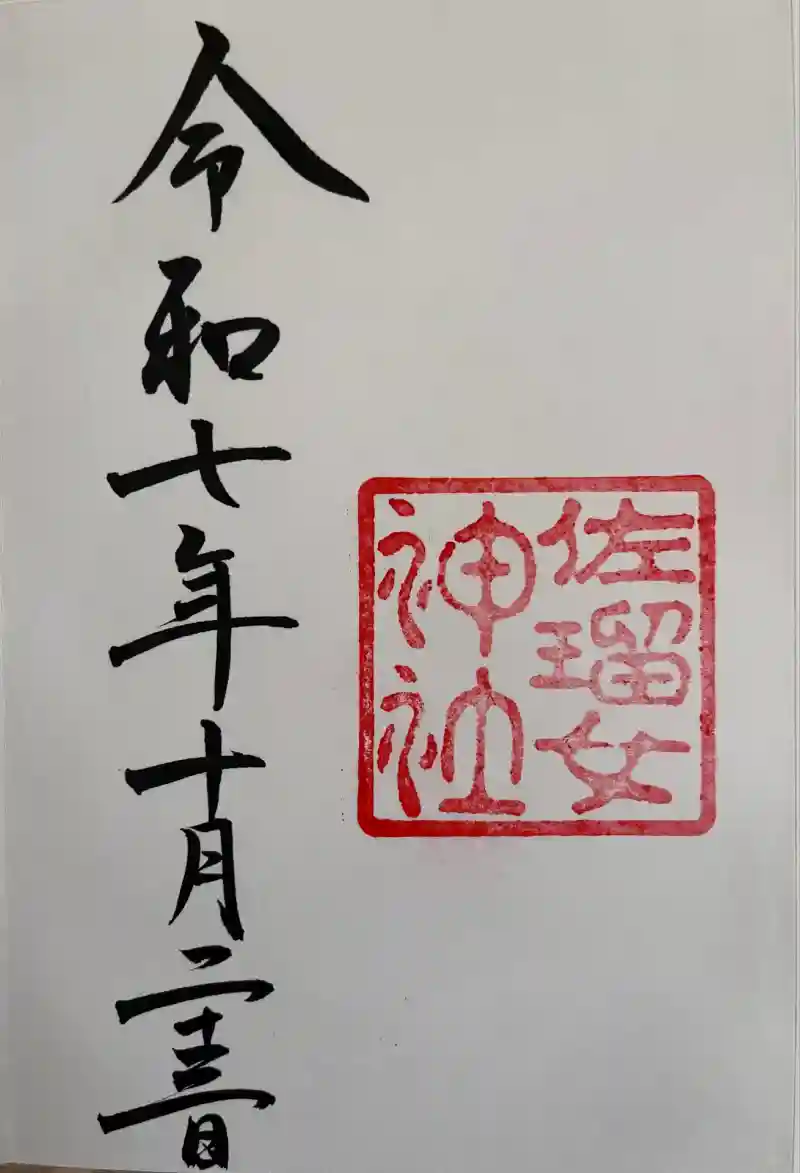 佐瑠女
神社
令和七年十月二十三日